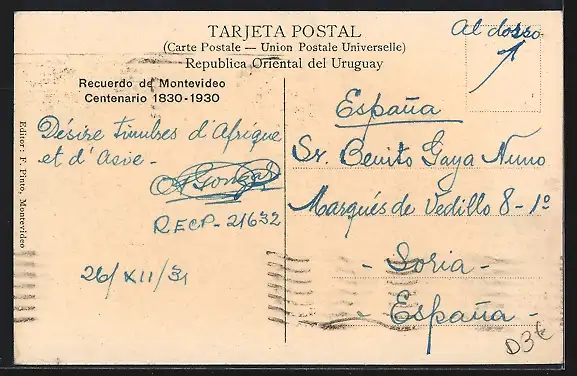 TARJETA POSTAL
(Carte Postale — Union Postale Universelle)
Republica Oriental del Uruguay
Al dosso
Recuerdo de Montevideo
Centenario 1830-1930
Désire timbres d'Afrique
et d'Asie -
RECP-21632
26/XII/31
Editor: F. Pinto, Montevideo
España
Sr. Benito Gaya Nuno
Marqués de Vedillo 8-1º
- Soria -
- España -
D3€